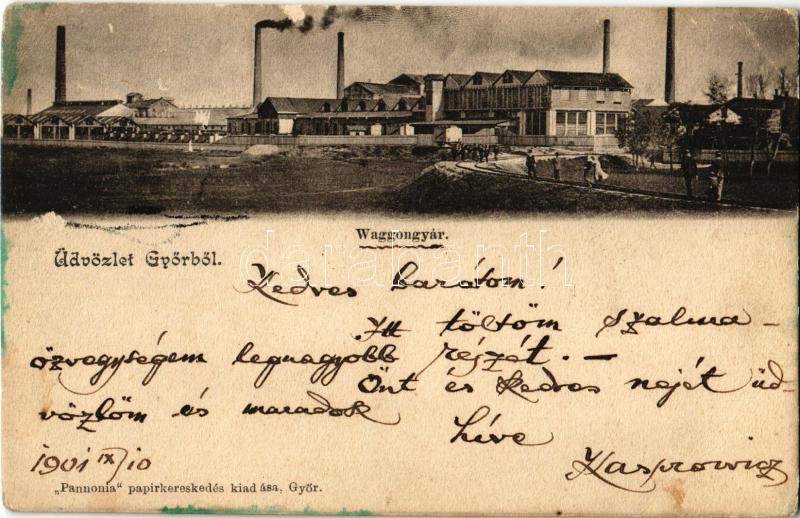 Waggongyár.
Üdvözlet Győrből.
Kedves barátom!
Itt töltöm szalma-
özvegységem legnagyobb részét. —
Önt és kedves nejét üd-
vözlöm és maradok
híve
1901 IX/10
Kasprowicz
„Pannonia" papirkereskedés kiadása, Győr.
darabanth